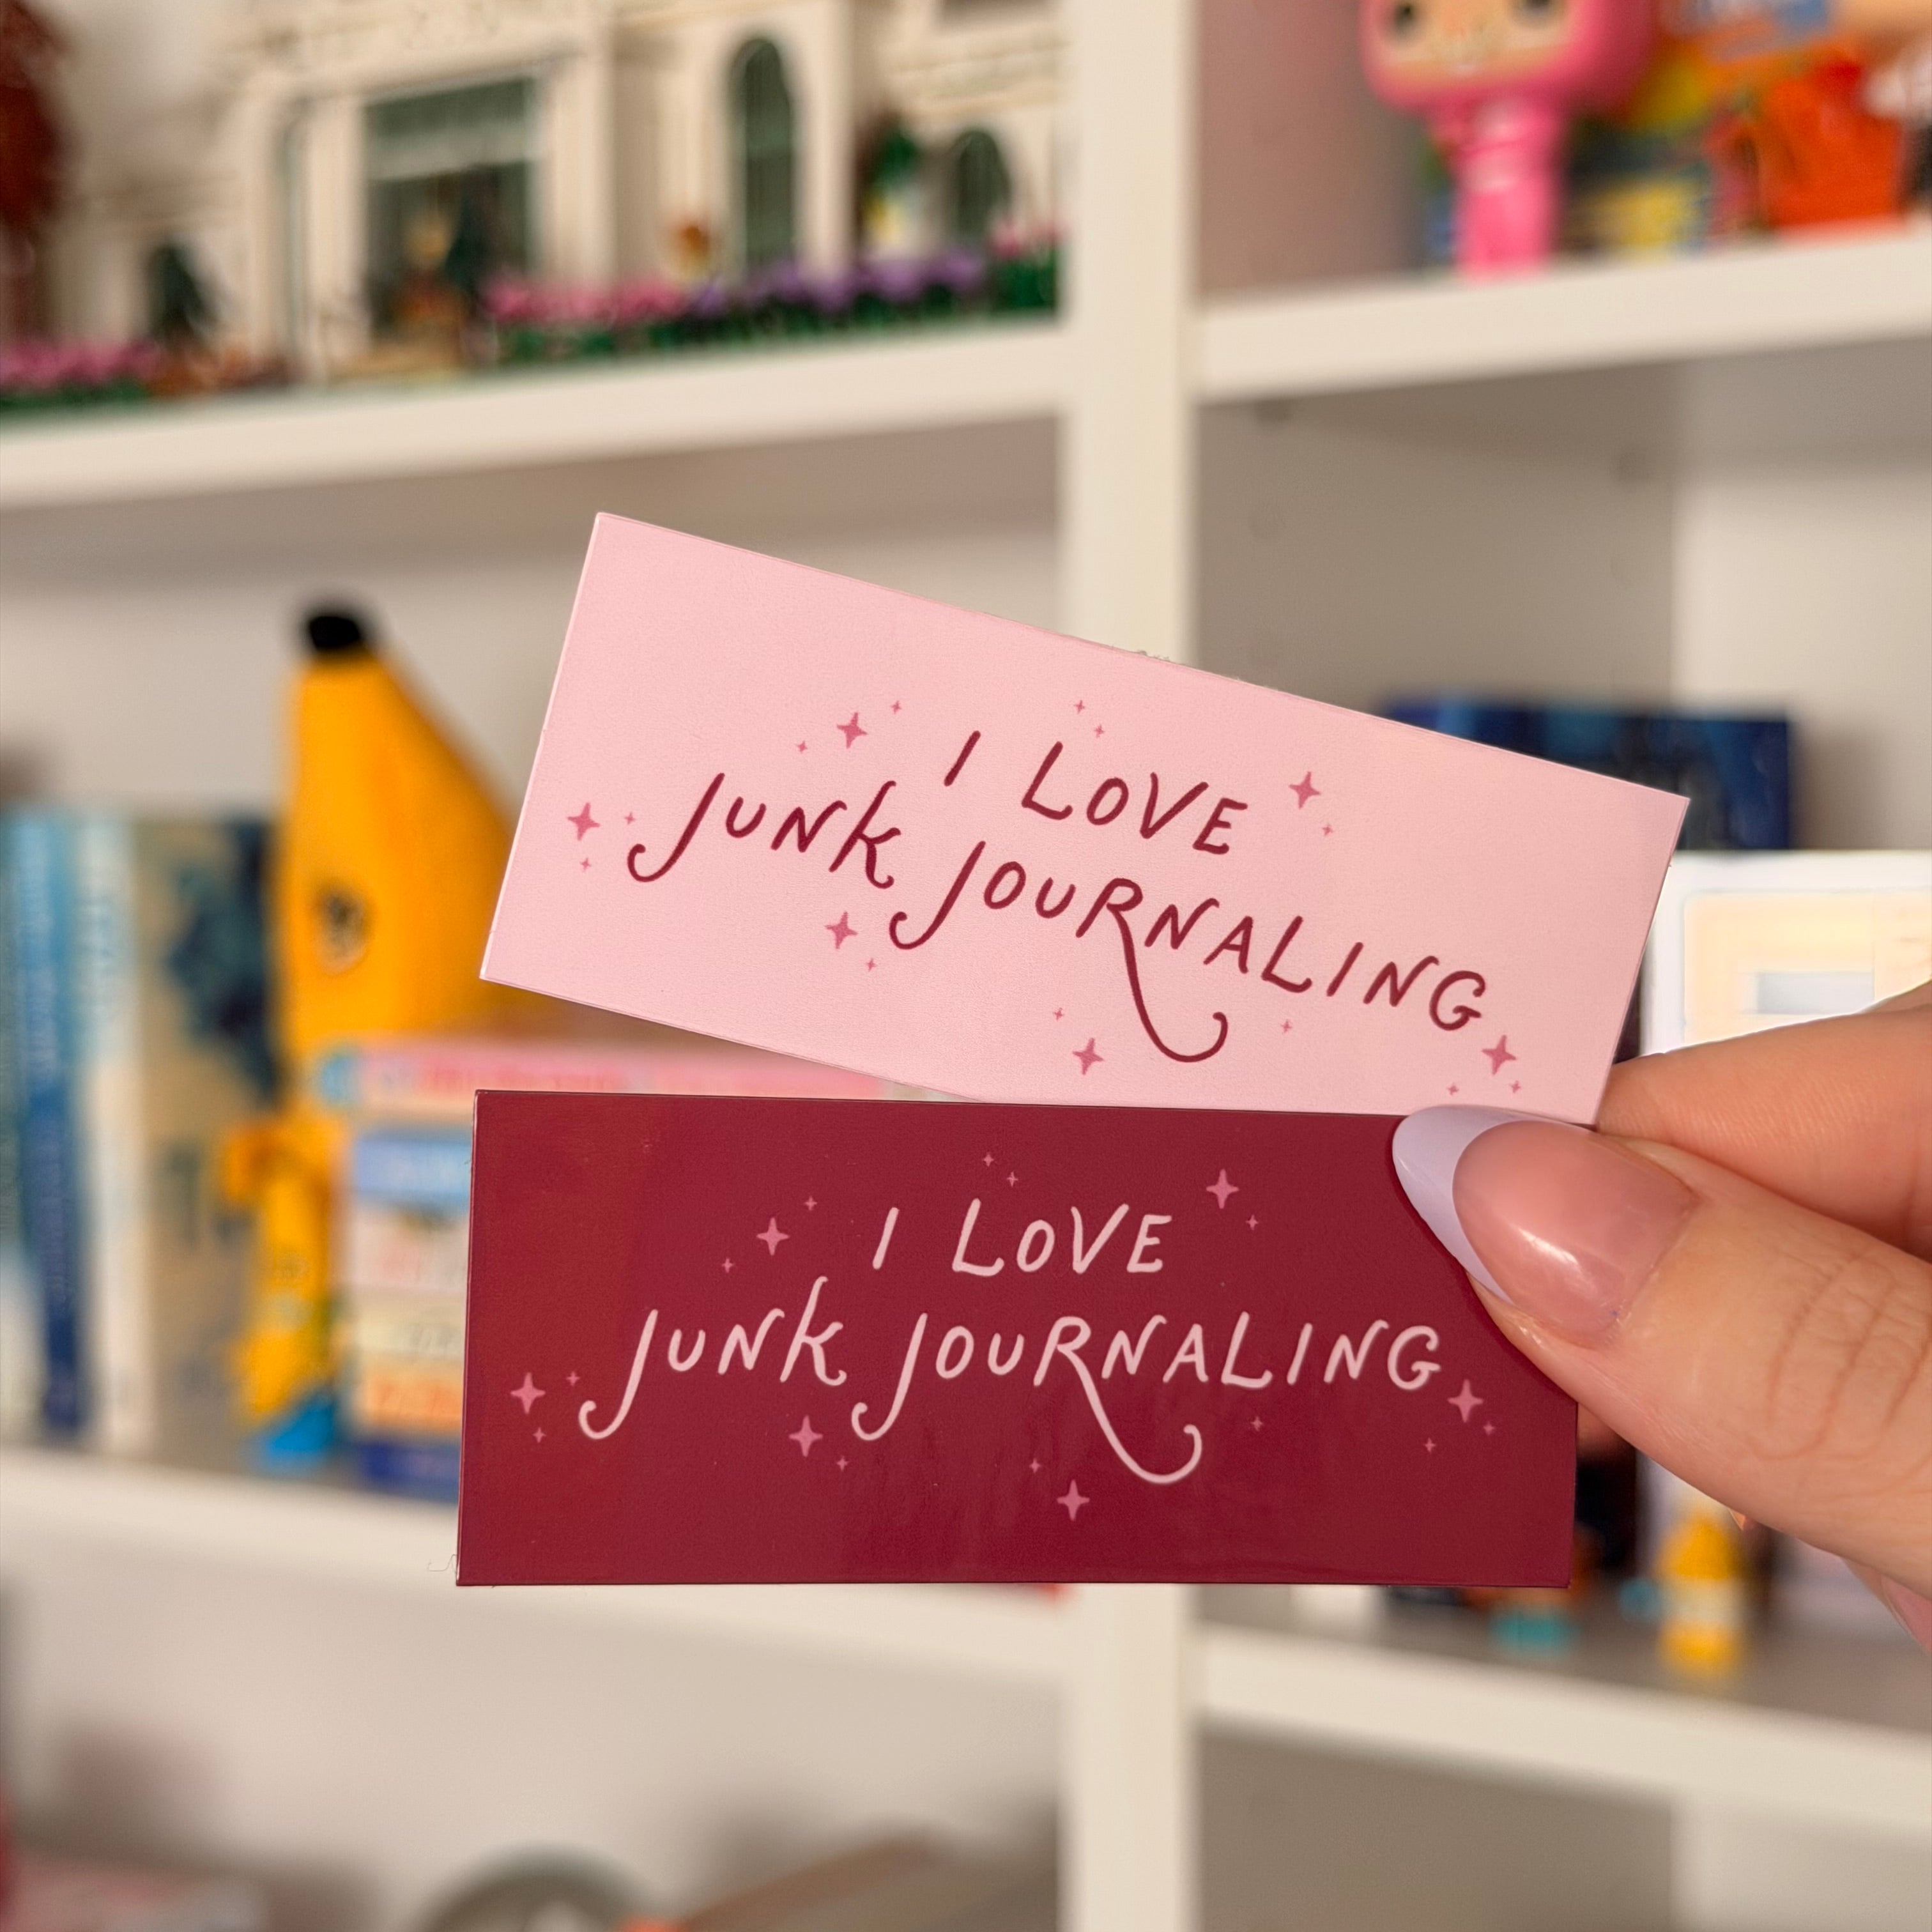 I LOVE
JUNK JOURNALING
I LOVE
JUNK JOURNALING